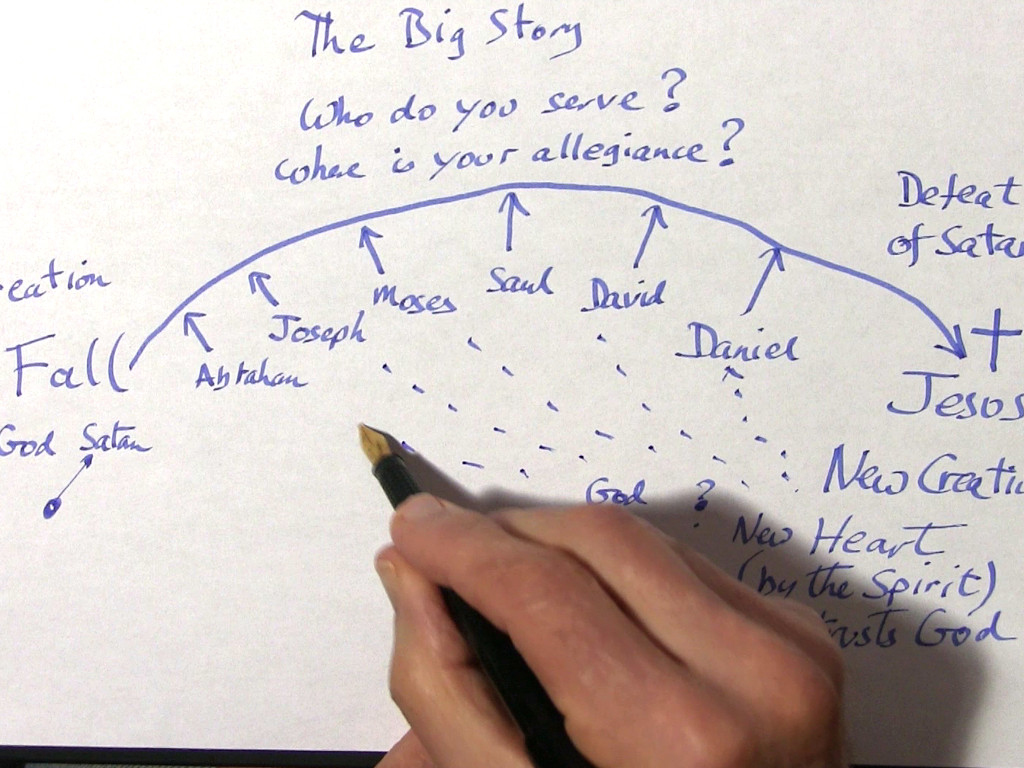 The Big Story
Who do you serve?
Where is your allegiance?
Defeat
of Satan
eation
Moses
Saul
David
Joseph
Daniel
Fall
Abraham
Jesus
God Satan
New Creati
God ?
New Heart
(by the Spirit)
trusts God